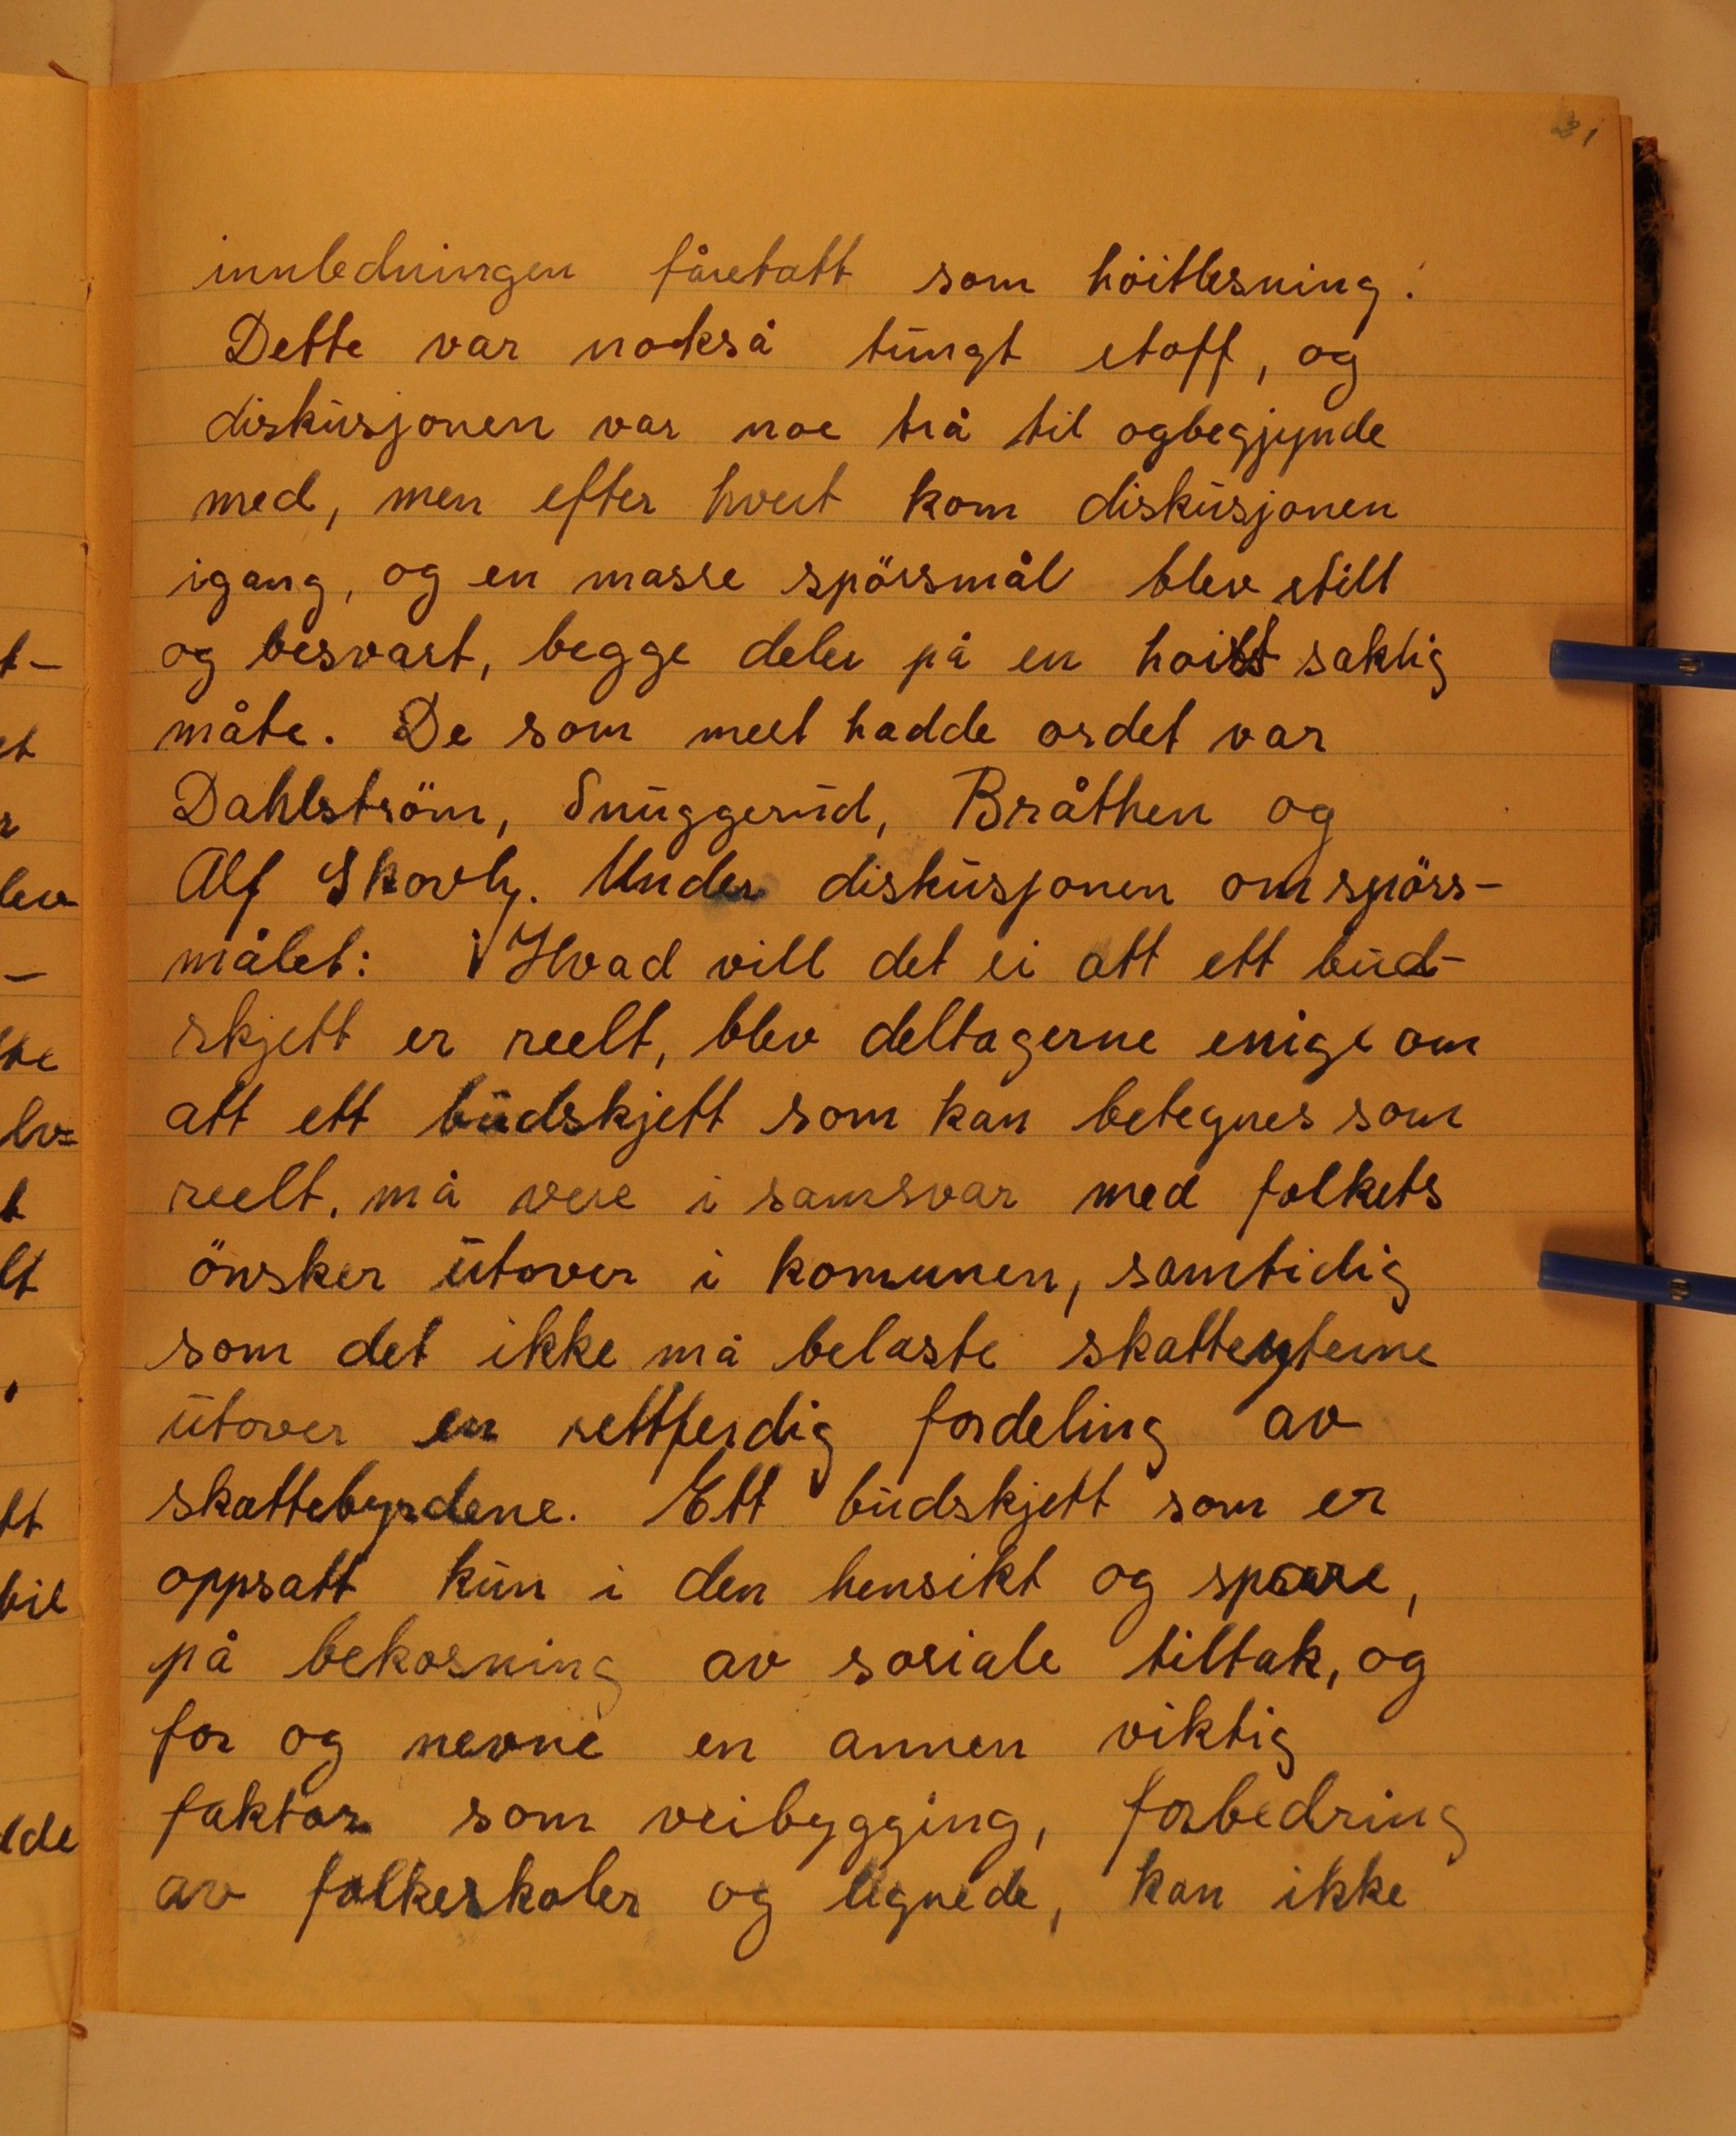 21
innledningen fåretatt som höitlesning.
Dette var nokså tungt stoff, og
diskusjonen var noe trå til ogbegjynde
med, men efter hvert kom diskusjonen
igang, og en masse spörsmål blev stillt
og besvart, begge deler på en hoist saklig
måte. De som mest hadde ordet var
Dahlström, Snuggerud, Bråthen og
Alf Skovly. Under diskusjonen om spörs-
målet: Hvad vill det si att ett bud-
skjett er reelt, blev deltagerne enige om
att ett budskjett som kan betegnes som
reelt, må vere i samsvar med folkets
önsker utover i komunen, samtidig
som det ikke må belaste skatteyterne
utover en rettferdig fordeling av
skattebyrdene. Ett budskjett som er
oppsatt kun i den hensikt og spare,
på bekosning av sosiale tiltak, og
for og nevne en annen viktig
faktor som veibygging, forbedring
av folkeskoler og lignede, kan ikke